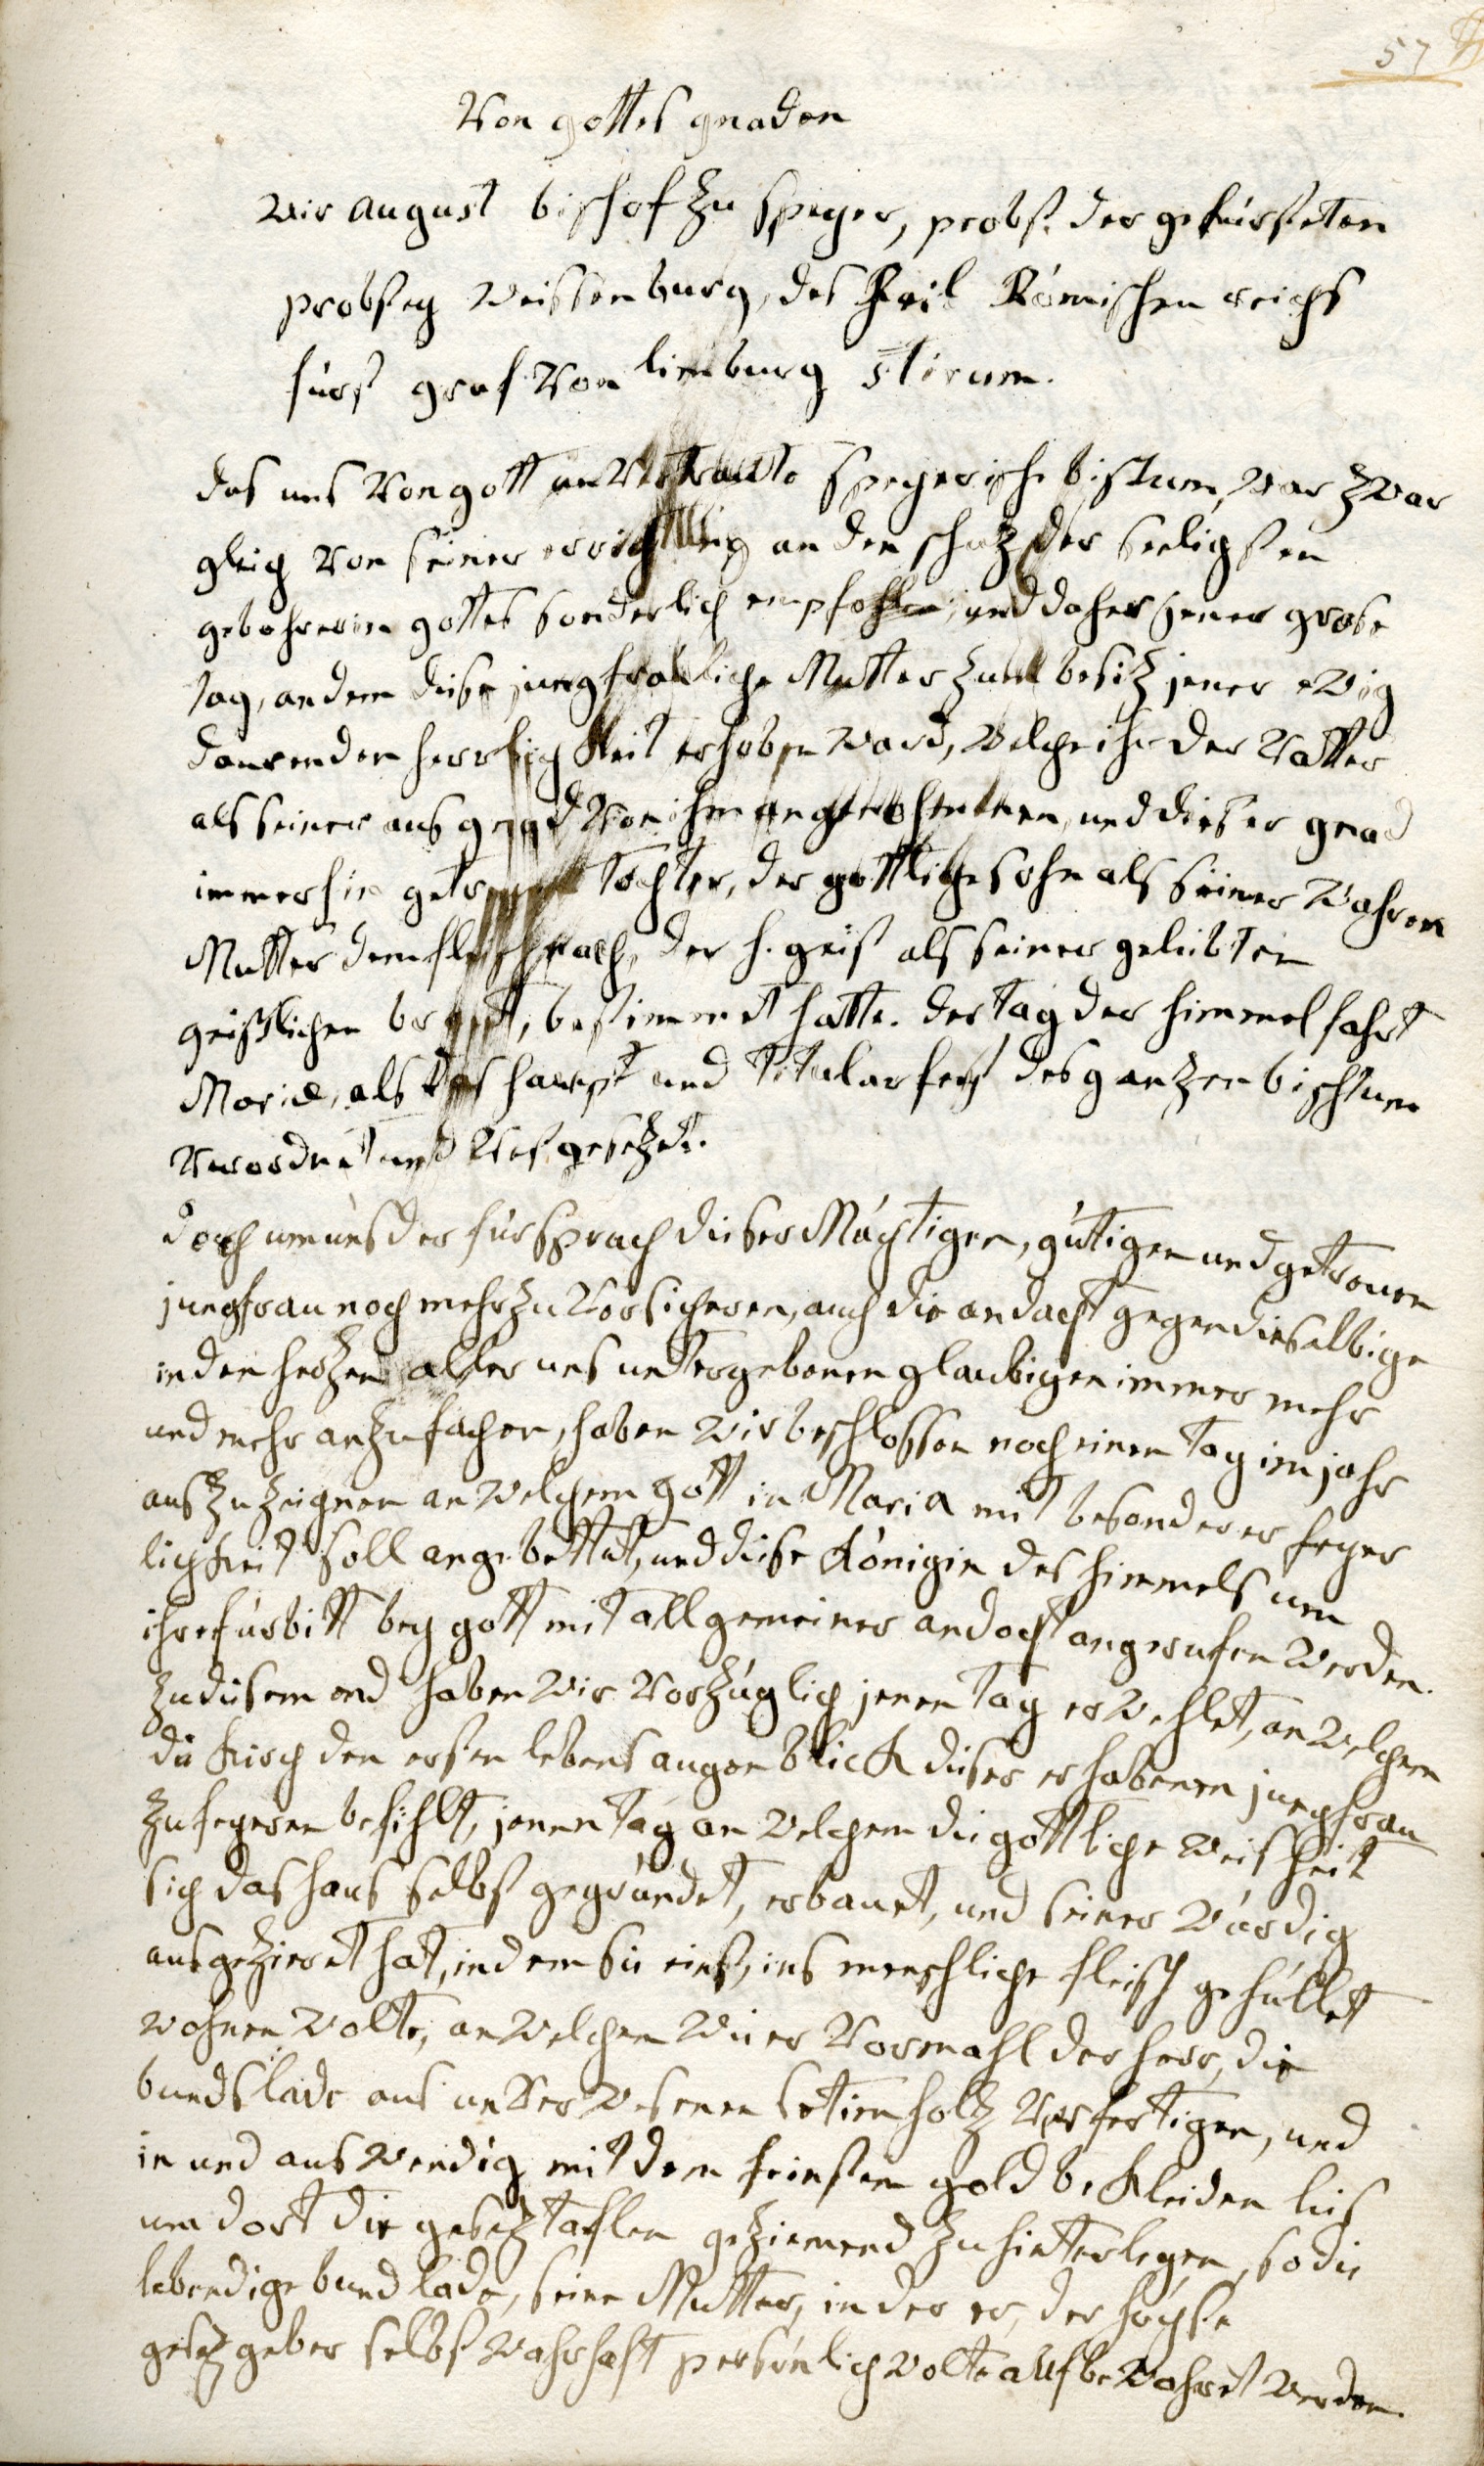 57
Von gottes gnaden
Wir August bischof zu Speyer, probst der gefürsteten
probstey Weissenburg, des Heil Römischen reichs
fürst graf von limburg stirum.
das uns von gott anvertraute Speyerische bistum, war zwar
gleich von seiner errichtung an den schuz der seeligsten
gebährerin gottes sonderlich empfohlen, und daher jener grose
tag, an dem diese jungfräuliche Mutter zum besitz jener ewig
daurenden herrlichkeit erhoben ward, welche ihr der Vatter
als seiner aus gnad von ihm angenohmenen, und dieser gnad
immerhin getreuen tochter, der göttliche sohn als seiner wahren
Mutter dem fleisch nach, der h. geist als seiner geliebten
geistlichen braut, bestimmet hatte. der tag der himmelfahrt
Mariæ, als das haupt und titular fest des ganzen bischtum
verordnet und vest gesezet.
doch um uns der fürsprach dieser Mächtigen, gütigen und getreuen
jungfrau noch mehr zu versicheren, auch die andacht gegen dieselbige
in den herzen aller uns untergebenen glaubigen immer mehr
und mehr anzufachen, haben wir beschlossen noch einen tag im jahr
auszuzeignen an welchem gott in Maria mit besonderer feyer
lichkeit soll angebettet, und diese Königin des himmels um
ihre fürbitt bey gott mit allgemeiner andacht angerufen werden.
zu diesem end haben wir vorzüglich jenen tag erwehlet, an welchem
die kirch den ersten lebens augenblick dieser erhabenen jungfrau
zu feyeren befihlt, jenen tag an welchem die göttliche weisheit
sich das haus selbst gegründet, erbauet, und seiner würdig
ausgezieret hat, indem sie einst, ins menschliche fleisch gehüllet
wohnen wolte, an welchem wie er vormahl der herr, die
bundslade aus unverwesenen setimholz verfertigen, und
in und auswendig mit dem feinsten gold bekleiden lies
um dort die gesez taflen geziemend zu hinterlegen, so die
lebendige bundlade, seine Mutter, in der er, der höchste
gesez geber selbst wahrhaft persönlich wolte aufbewahret werden.